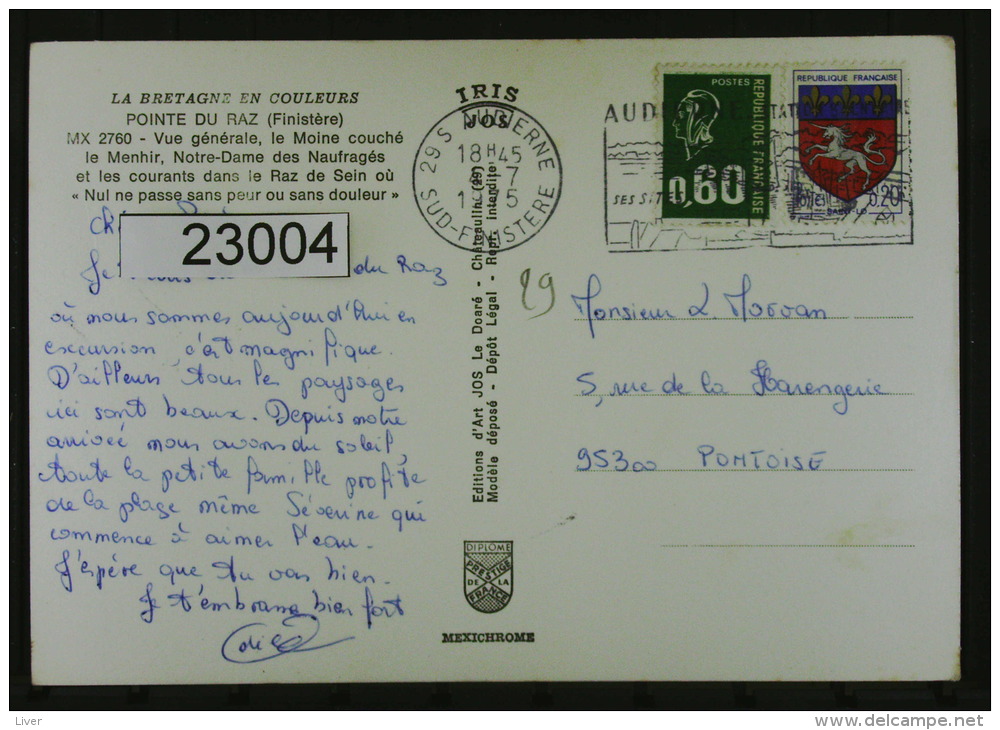 LA BRETAGNE EN COULEURS
POINTE DU RAZ (Finistère)
MX 2760 - Vue générale, le Moine couché
le Menhir, Notre-Dame des Naufragés
et les courants dans le Raz de Sein où
« Nul ne passe sans peur ou sans douleur »
23004
Je du Raz
où nous sommes aujourd'hui en
excursion, c'est magnifique.
D'ailleurs tous les paysages
ici sont beaux. Depuis notre
arrivée nous avons du soleil,
toute la petite famille profite
de la plage même Séverine qui
commence à aimer l'eau.
J'espère que tu vas bien.
Je t'embrasse bien fort
IRIS
JOS
29 S AUDIERNE
18 H 45
7
SUD-FINISTERE
Editions d'Art JOS Le Doaré - Châteaulin (29)
Modèle déposé - Dépôt Légal - Repr. interdite
DIPLOME
PRESTIGE
DE LA
FRANCE
MEXICHROME
POSTES
REPUBLIQUE FRANÇAISE
0,60
REPUBLIQUE FRANÇAISE
0,20
SAINT-LO
AUDIERNE
SES SITES
29
Monsieur L. Morvan
5, rue de la Harengerie
95300 PONTOISE
Liver
www.delcampe.net